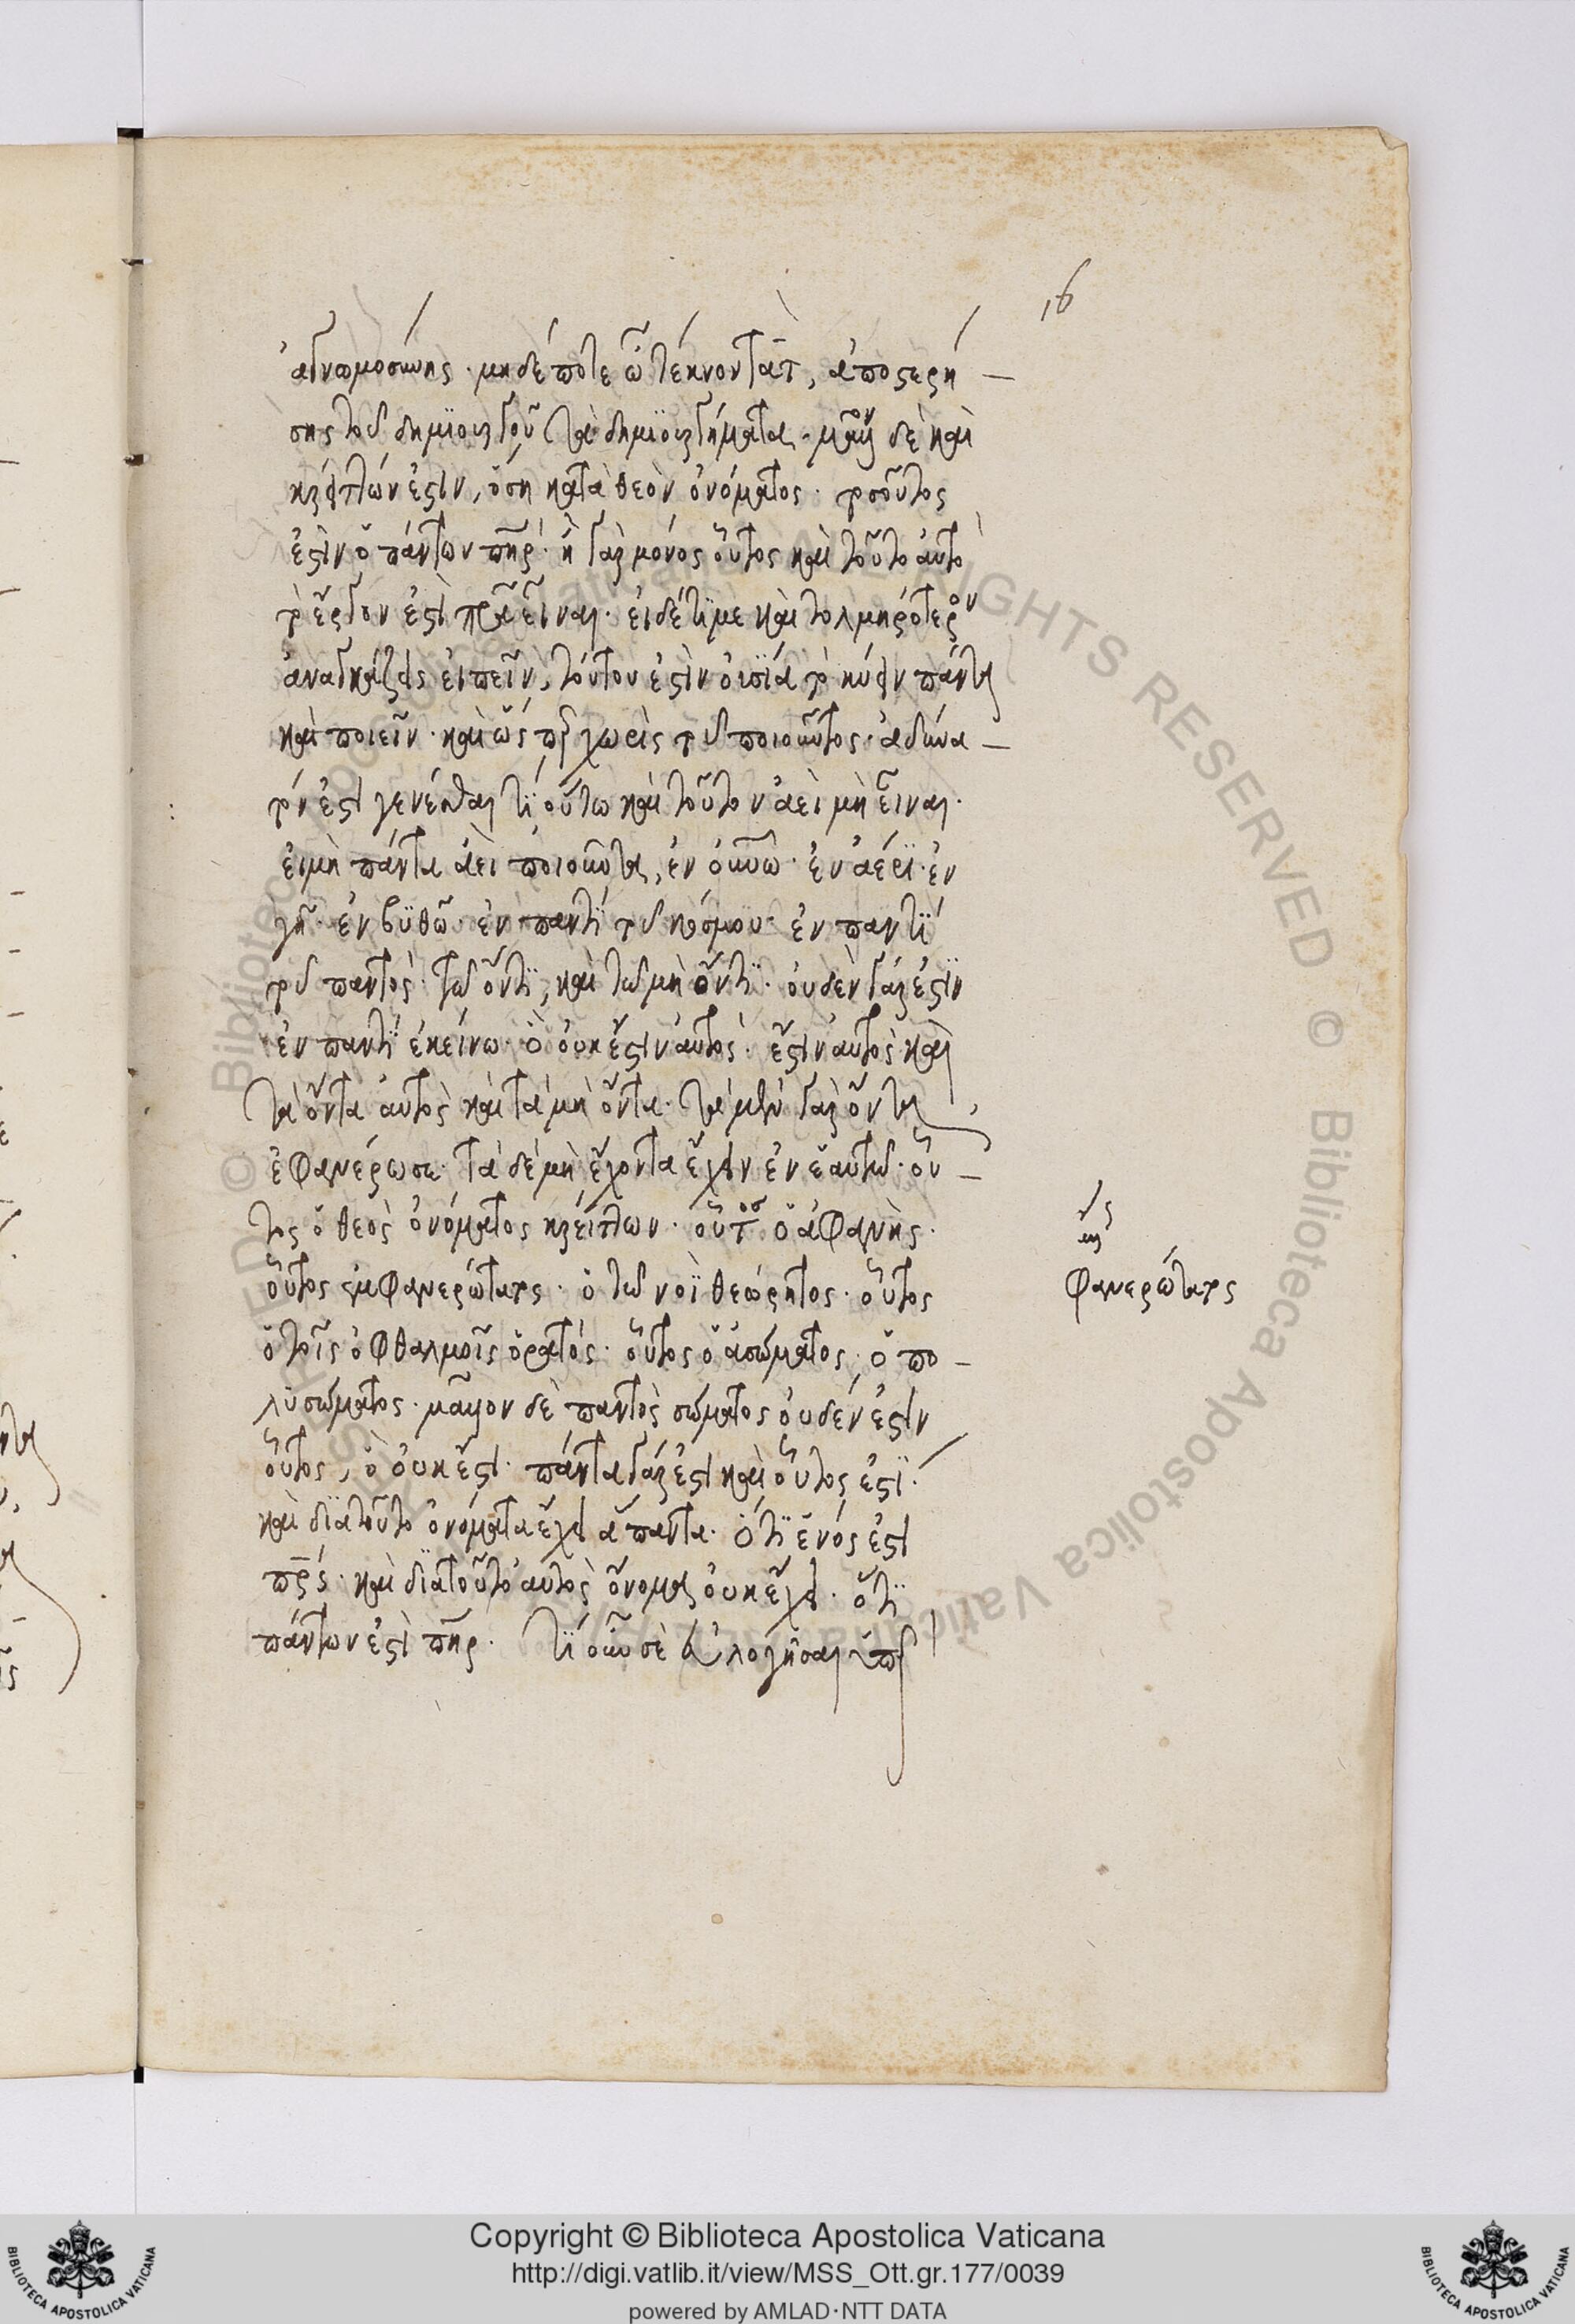 16
ἀγνωμοσύνης · μηδέποτε ὦ τέκνον τὰτ, ἀποστερή
σης τοῦ δημϊουργοῦ τὰ δημϊουργήματα · μᾶλλον δὲ καὶ
κρείττων ἐστὶν, ὅση κατὰ θεὸν ὀνόματος · τοσοῦτος
ἐστὶν ὁ πάντων πῆρ · ἦ γὰρ μόνος οὗτος καὶ τοῦτο αὐτὸ
τὸ ἔργον ἐστὶ πρα εἶναι · εἰ δέ τϊ με καὶ τολμηρότερον
ἀναγκάζεις εἰπεῖν, τούτου ἐστὶν οὐσία τὸ κύειν πάντα
καὶ ποιεῖν · καὶ ὥσπερ χωρὶς τοῦ ποιοῦντος · ἀδύνα
τόν ἐστι γενέσθαι τϊ οὕτω καὶ τοῦτον ἀεὶ μὴ εἶναι ·
εἰ μὴ πάντα ἀεὶ ποιοῦντα, ἐν οὐνῶ · ἐν ἀέρϊ · ἐν
γῆ · ἐν βϋθῶ · ἐν παντϊ τοῦ κόσμου · ἐν παντϊ
τοῦ παντὸς · τῶ ὄντϊ, καὶ τῶ μὴ ὄντϊ · οὐδὲν γάρ ἐστϊν
ἐν παντϊ ἐκείνω · ὃ οὐκ ἔστιν αὐτός · ἔστιν αὐτὸς καὶ
τὰ ὄντα αὐτὸς καὶ τὰ μὴ ὄντα · τὰ μὲν γὰρ ὄντα
ἐφανέρωσε · τὰ δὲ μὴ ἔχοντα ἔχειν ἐν ἑαυτῶ · οὗ
τος ὁ θεὸς ὀνόματος κρείττων · οὗτος ὁ ἀφανὴς ·
οὗτος ἐμφανερώτατος · ὁ τῶ νοϊ θεώρητος · οὗτος
φανερώτατος
ὁ τοῖς ὀφθαλμοῖς ὁρατός · οὗτος ὁ ἀσώματος, ὁ πο
λϋσώματος · μᾶλλον δὲ παντὸς σώματος οὐδέν ἐστιν
οὗτος, ὃ οὐκ ἔστι · πάντα γάρ ἐστι καὶ οὗτος ἐστϊ ·
καὶ δϊατοῦτο ὀνόματα ἔχει ἅπαντα · ὅτϊ ἑνός ἐστι
πρς · καὶ δϊατοῦτο αὐτὸς ὄνομα οὐκ ἔχει · ὅτϊ
πάντων ἐστὶ πῆρ · τϊ οὖν σὲ εὐλογῆσαι ὑπὲρ
Copyright © Biblioteca Apostolica Vaticana
http://digi.vatlib.it/view/MSS_Ott.gr.177/0039
powered by AMLAD·NTT DATA